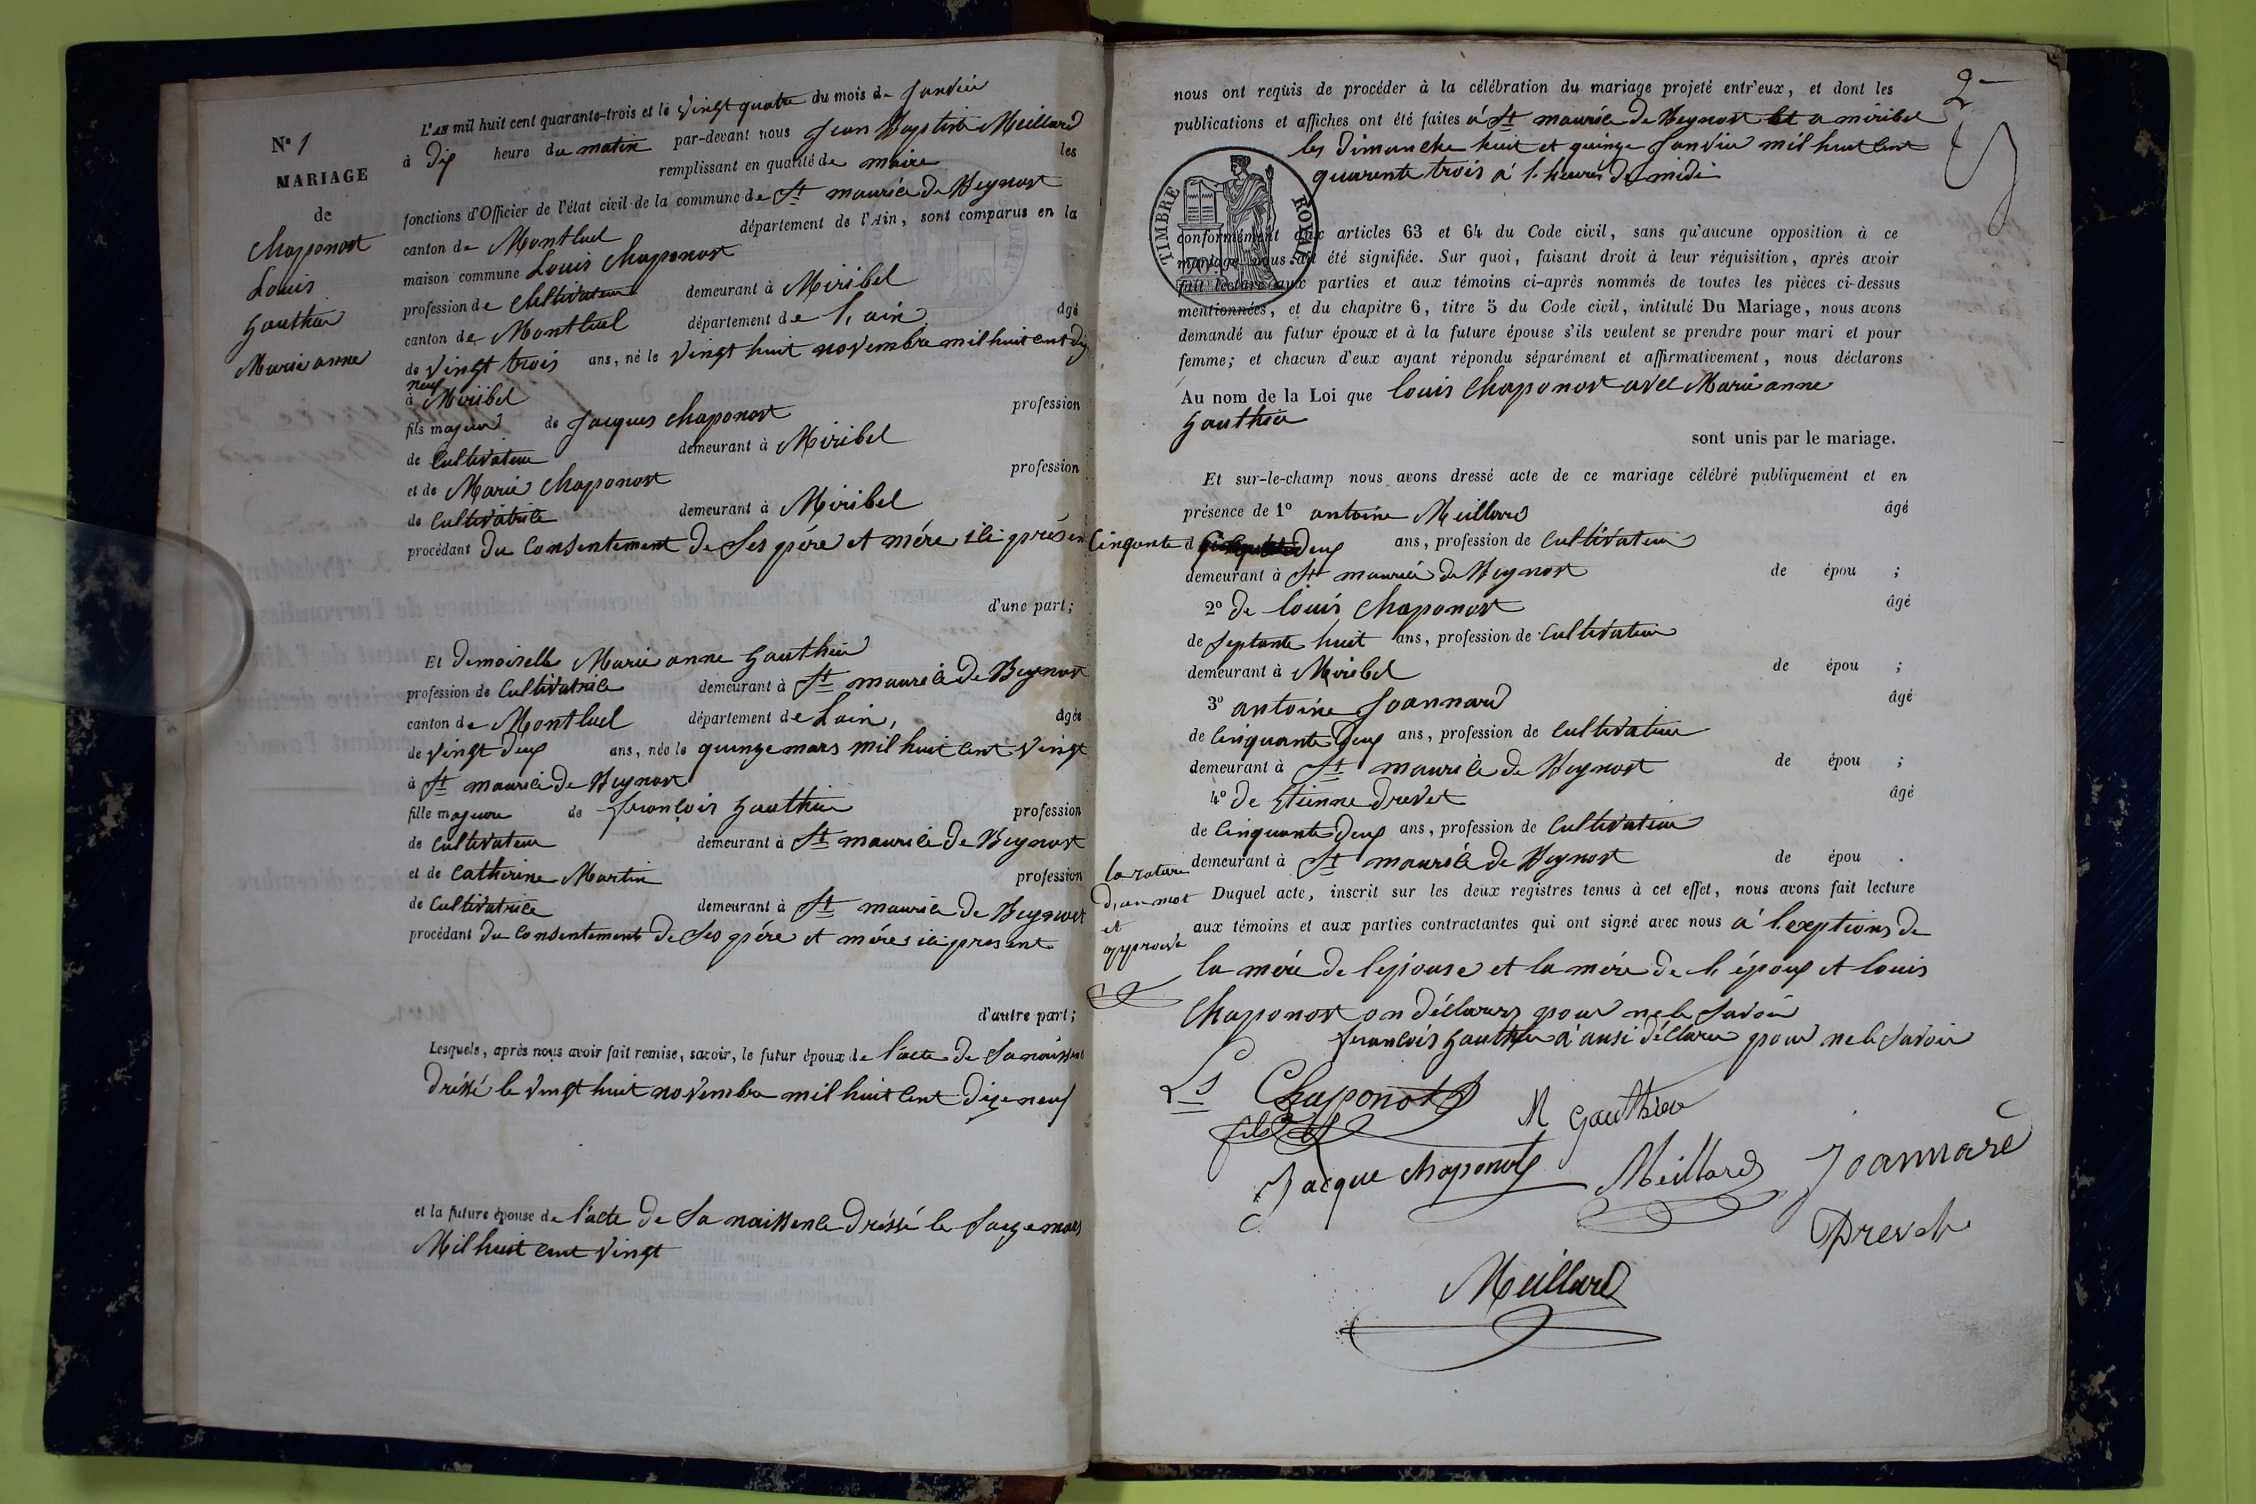 N° 1
MARIAGE
de
Chaponost
Louis
Gauthier
Marie anne
L'AN mil huit cent quarante-trois et le vingt quatre du mois de Janvier
à dix heure du matin par-devant nous Jean Baptiste Meillard
remplissant en qualité de maire les
fonctions d'Officier de l'état civil de la commune de St maurice De Beynost
canton de Montluel département de l'Ain, sont comparus en la
maison commune Louis Chaponost
profession de Cultivateur demeurant à Miribel
canton de Montluel département de l'ain âgé
de vingt trois ans, né le vingt huit novembre mil huit cent dix
neuf
à Miribel
fils majeur de Jacques Chaponost profession
de Cultivateur demeurant à Miribel
et de Marie Chaponost profession
de Cultivatrice demeurant à Miribel
procédant du Consentement De Ses père et mère ici présen
d'une part;
Et Demoiselle Marie anne Gauthier
profession de Cultivatrice demeurant à St maurice De Beynost
canton de Montluel département de Lain, âgée
de vingt deux ans, née le quinze mars mil huit cent vingt
à St maurice De Beynost
fille majeure de françois Gauthier profession
de Cultivateur demeurant à St maurice De Beynost
et de Catherine Martin profession
de Cultivatrice demeurant à St maurice De Beynost
procédant du Consentement De Ses père et mères ici present
d'autre part;
Lesquels, après nous avoir fait remise, savoir, le futur époux de l'acte De Sa naissance
Dréssé le vingt huit novembre mil huit cent dize neuf
et la future épouse de l'acte De Sa naissence Dréssé le Saize mars
Mil huit cent vingt
2
nous ont requis de procéder à la célébration du mariage projeté entr'eux, et dont les
publications et affiches ont été faites à St maurice De Beynost et a miribel
les Dimanche huit et quinze Janvier mil huit cent
quarente trois à l. heures De midi
TIMBRE ROYAL
70
conformément aux articles 63 et 64 du Code civil, sans qu'aucune opposition à ce
mariage nous ait été signifiée. Sur quoi, faisant droit à leur réquisition, après avoir
fait lecture aux parties et aux témoins ci-après nommés de toutes les pièces ci-dessus
mentionnées, et du chapitre 6, titre 5 du Code civil, intitulé Du Mariage, nous avons
demandé au futur époux et à la future épouse s'ils veulent se prendre pour mari et pour
femme; et chacun d'eux ayant répondu séparément et affirmativement, nous déclarons
Au nom de la Loi que louis Chaponost avec Marie anne
Gauthier
sont unis par le mariage.
Et sur-le-champ nous avons dressé acte de ce mariage célébré publiquement et en
présence de 1° antoine Meillard âgé
Cinqante d deux ans, profession de Cultivateur
demeurant à St maurice De Beynost de épou ;
2° De louis Chaponost âgé
de Septante huit ans, profession de Cultivateur
demeurant à Miribel de épou ;
3° antoine Joannard âgé
de Cinquante Deux ans, profession de Cultivateur
demeurant à St maurice De Beynost de épou ;
4° De Etienne Drevet âgé
de Cinquante Deux ans, profession de Cultivateur
demeurant à St maurice De Beynost de épou .
la rature
D'un mot
et
approuvé
Duquel acte, inscrit sur les deux registres tenus à cet effet, nous avons fait lecture
aux témoins et aux parties contractantes qui ont signé avec nous à l'exptions De
la mére De lepouse et la mére De l'époux et louis
Chaponost on déclarez pour ne le Savoir
francois Gauthier à ausi déllarer pour ne le Savoir
Ls Chaponost
fils
M Gauthier
Jacque chaponost
Meillard
Joannard
Drevet
Meillard